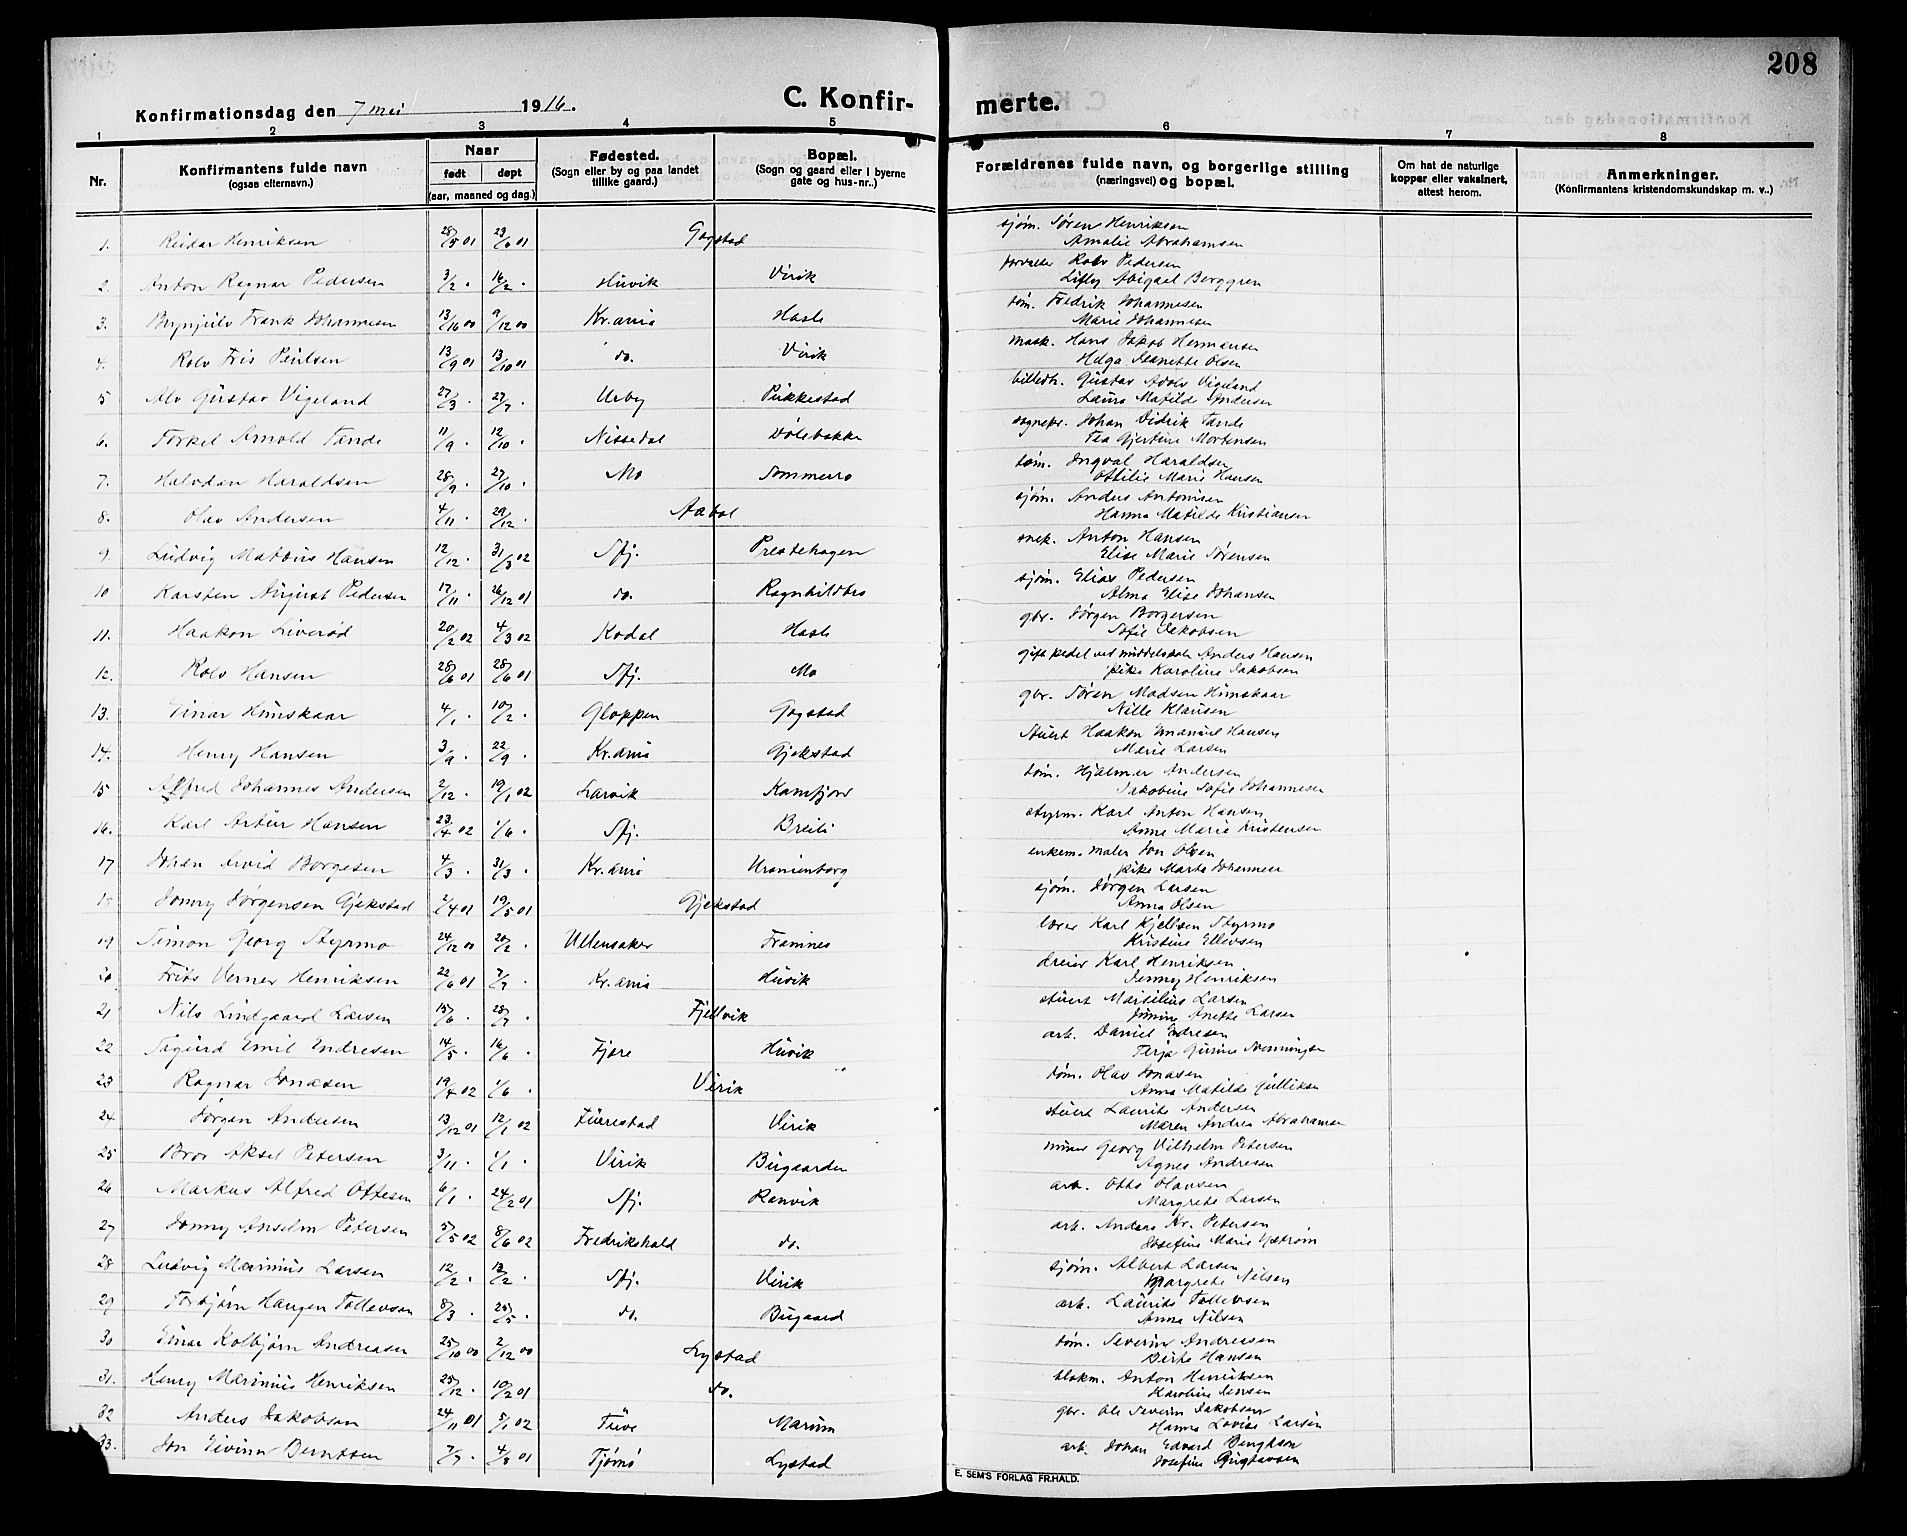 208
Konfirmationsdag den 7 mai 1916. C. Konfir- merte.
1 2 3 4 5 6 7 8
Nr. Konfirmantens fulde navn (ogsaa efternavn.) Naar født døpt (aar, maaned og dag.) Fødested. (Sogn eller by og paa landet tillike gaard.) Bopæl. (Sogn og gaard eller i byerne gate og hus-nr.,) Forældrenes fulde navn, og borgerlige stilling (næringsvei) og bopæl. Om hat de naturlige kopper eller vaksinert, attest herom. Anmerkninger. (Konfirmantens kristendomskundskap m. v..)
1. Reidar Henriksen 28/5 01 23/6 01 Gogstad sjøm. Søren Henriksen
Amalie Abrahamsen
2. Anton Ragnar Pedersen 3/2 . 16/2 . Huvik Virik Rolv Pedersen
Abigael Berggren
3. Brynjulv Frank Johannesen 9/12 00 Kr.ania Hasle tøm. Fredrik Johannesen
Marie Johannesen
4. Rolv Friis Paulsen 13/9 01 13/10 01 do. Virik mask. Hans Jakob Hermansen
Helga Jeanette Olsen
5 Alv Gustav Vigeland 27/3 . 27/7 . Urby Pukkestad billedh. Gustav Adolv Vigeland
Laura Matilde Andersen
6. Torkel Arnold Tande 11/9 . 12/10 . Nissedal Dølebakke sognepr. Johan Didrik Tande
Tea Gjertine Mortensen
7. Halvdan Haraldsen 28/9 . 27/10 . Mo Sommerro tøm. Ingval Haraldsen
Ottilie Marie Hansen
8. Olav Andersen 4/11 . 29/12 . Aabol sjøm. Anders Antonisen
Hanna Matilde Kristiansen
9. Ludvig Mattius Hansen 12/12 . 31/3 02 Sfj. Prestehagen snek. Anton Hansen
Elise Marie Sørensen
10 Karsten August Pedersen 17/11 . 26/12 01 do. Ragnhildbro sjøm. Elias Pedersen
Alma Elise Johansen
11. Haakon Liverød 20/2 02 4/3 02 Kodal Hasle gbr. Jørgen Borgersen
Sofie Jakobsen
12. Rolv Hansen 28/6 01 28/6 01 Sfj. Mo gift pedel ved middelskole Anders Hansen
pike Karoline Jakobsen
13. Einar Humskaar 4/1 . 10/2 . Gloppen Gogstad gbr. Søren Madsen Humskaar
Nille Klausen
14. Henry Hansen 3/9 . 22/9 . Kr.ania Gjekstad Stuert Haakon Emanuel Hansen
Marie Larsen
15 Alfred Johannes Andersen 2/12 . 19/1 02 Larvik Kamfjord tøm. Hjalmar Andersen
Jakobine Sofie Johannesen
16. Karl Artur Hansen 23/4 02 1/6 . Sfj. Breili styrm. Karl Anton Hansen
Anne Marie Kristensen
17 Johan Arvid Borgesen 4/3 . 31/3 . Kr.ania Uranienborg enkem. maler Jon Olsen
pike Marta Johannesen
18 Jonny Jørgensen Gjekstad 2/4 01 19/5 01 Gjekstad sjøm. Jørgen Larsen
Anna Olsen
19 Simon Georg Styrmo 24/12 00 20/2 . Ullensaker Framnes lærer Karl Kjellsen Styrmo
Kristine Ellevsen
20 Frits Verner Henriksen 22/6 01 7/7 . Kr.ania Huvik dreier Karl Henriksen
Jenny Henriksen
21 Nils Lindgaard Larsen 15/6 . 28/7 . Fjellvik stuert Marselius Larsen
Anette Larsen
22 Sigurd Emil Endresen 14/5 . 16/6 . Fjære Huvik arb. Daniel Endresen
Terja Gurine
23 Ragnar Jonasen 19/4 02 1/6 . Virik tøm. Olav Jonasen
Anna Matilde Gulliksen
24. Jørgen Andersen 13/12 01 12/1 02 Furrestad Virik stuert Laurits Andersen
Maren Andrea Abrahamsen
25 Bror Aksel Petersen 3/11 . 1/1 . Virik Bugaarden murer Georg Vilhelm Petersen
Agnes Andresen
26 Markus Alfred Ottesen 6/1 . 24/2 01 Sfj. Ranvik arb. Otto Olausen
Margrete Larsen
27 Jonny Anselm Petersen 5/5 02 8/6 02 Fredrikshald do. arb. Anders Kr. Petersen
Josefine Marie
28 Ludvig Marinius Larsen 12/2 . Sfj. Virik sjøm. Albert Larsen
Margrete Nilsen
29 Torbjørn Haugen Tollevsen 8/3 . 25/5 . do. Bugaard arb. Laurits Tollevsen
Anna Nilsen
30 Einar Kolbjørn Andreasen 25/10 00 2/12 00 Lystad tøm. Severin Andreasen
Berte Hansen
31. Henry Marinius Henriksen 25/12 . 10/2 01 do. blokm. Anton Henriksen
Karoline Jensen
32 Anders Jakobsen 24/11 01 5/1 02 Tuve Marum gbr. Ole Severin Jakobsen
Hanna Lovise Larsen
33. Jon Eivinn Berntsen 7/7 . 4/8 01 Tjømø Lystad arb. Johan Edvard Bengtson
Josefine Gustavsen
E. SEM'S FORLAG FR.HALD.